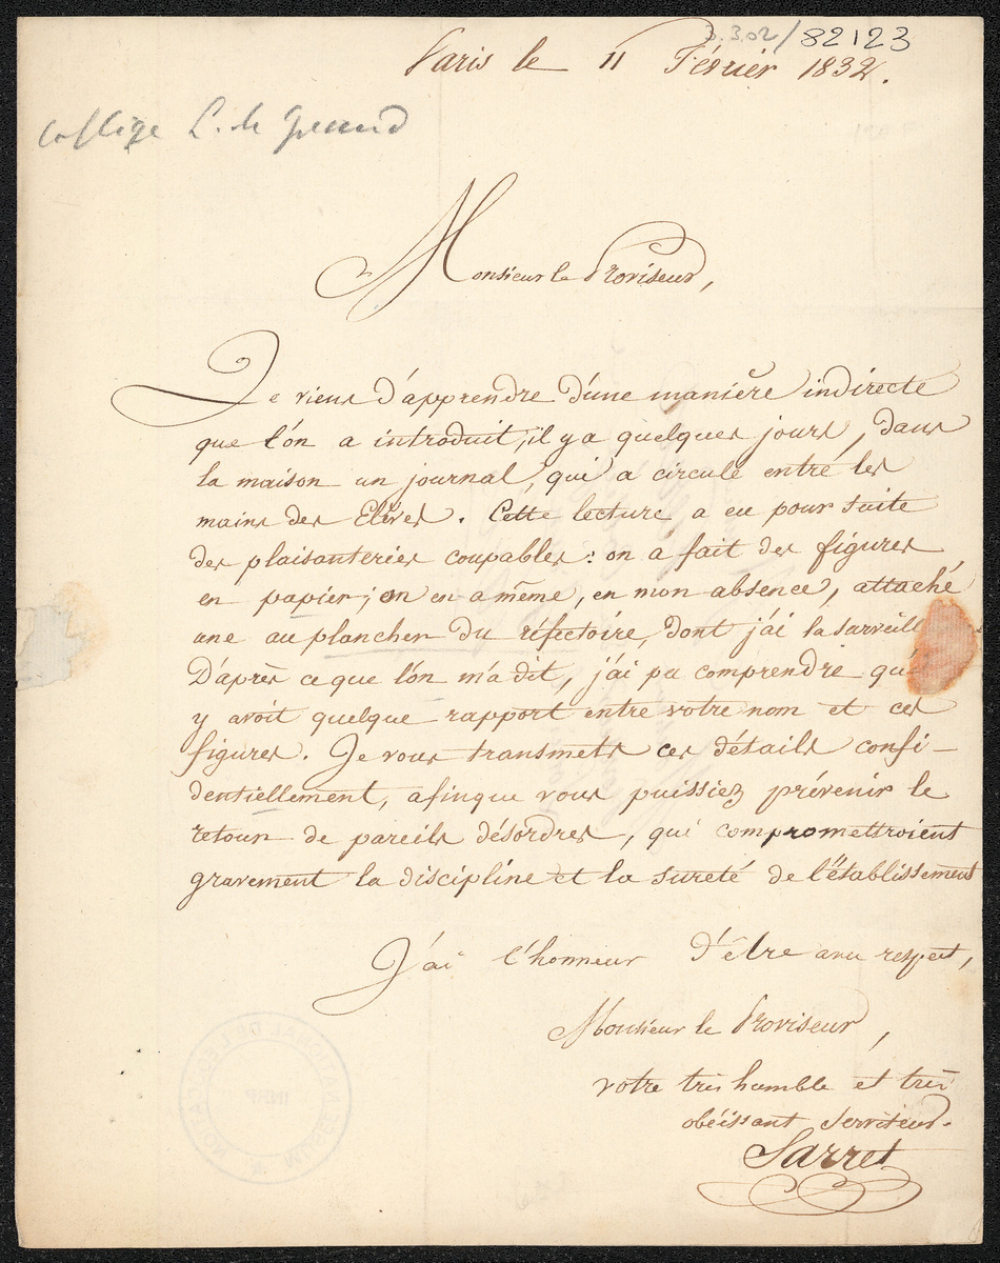 3.3.02/82123
Paris le 11 Février 1832.
collége L. le Grand
Monsieur le Proviseur,
Je viens d'apprendre d'une manière indirecte
que l'on a introduit, il y a quelques jours, dans
la maison un journal, qui a circulé entre les
mains des Elèves. Cette lecture a eu pour suite
des plaisanteries coupables : on a fait des figures
en papier ; on en a même, en mon absence, attaché
une au plancher du réfectoire, dont j'ai la surveill
D'après ce que l'on m'a dit, j'ai pu comprendre qu'
y avoit quelque rapport entre votre nom et ces
figures. Je vous transmets ces détails confi-
dentiellement, afinque vous puissiez prévenir le
retour de pareils désordres, qui compromettroient
gravement la discipline et la sureté de l'établissement
J'ai l'honneur d'être avec respect,
Monsieur le Proviseur,
votre très humble et très
obéissant serviteur.
Sarret
MUSÉE NATIONAL DE L'ÉDUCATION
INRP